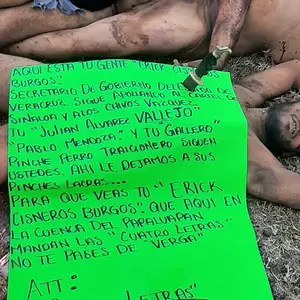 AQUI ESTA TU GENTE "ERICK CISNEROS
BURGOS"
SECRETARIO DE GOBIERNO DEL ESTADO DE
VERACRUZ. SIGUE APOLLANDO AL CARTEL DE
SINALOA Y ALOS CHUVOS VAZQUEZ.
TU "JULIAN ALVAREZ VALLEJO"
"PABLO MENDOZA" Y TU GALLERO"
PINCHE PERRO TRAICIONERO SIGUEN
USTEDES. AHI LE DEJAMOS A SUS
PINCHES LACRAS...
PARA QUE VEAS TU "ERICK
CISNEROS BURGOS". QUE AQUI EN
LA CUENCA DEL PAPALUAPAN
MANDAN LAS "CUATRO LETRAS"
NO TE PASES DE VERGA"
ATT:
LETRAS"